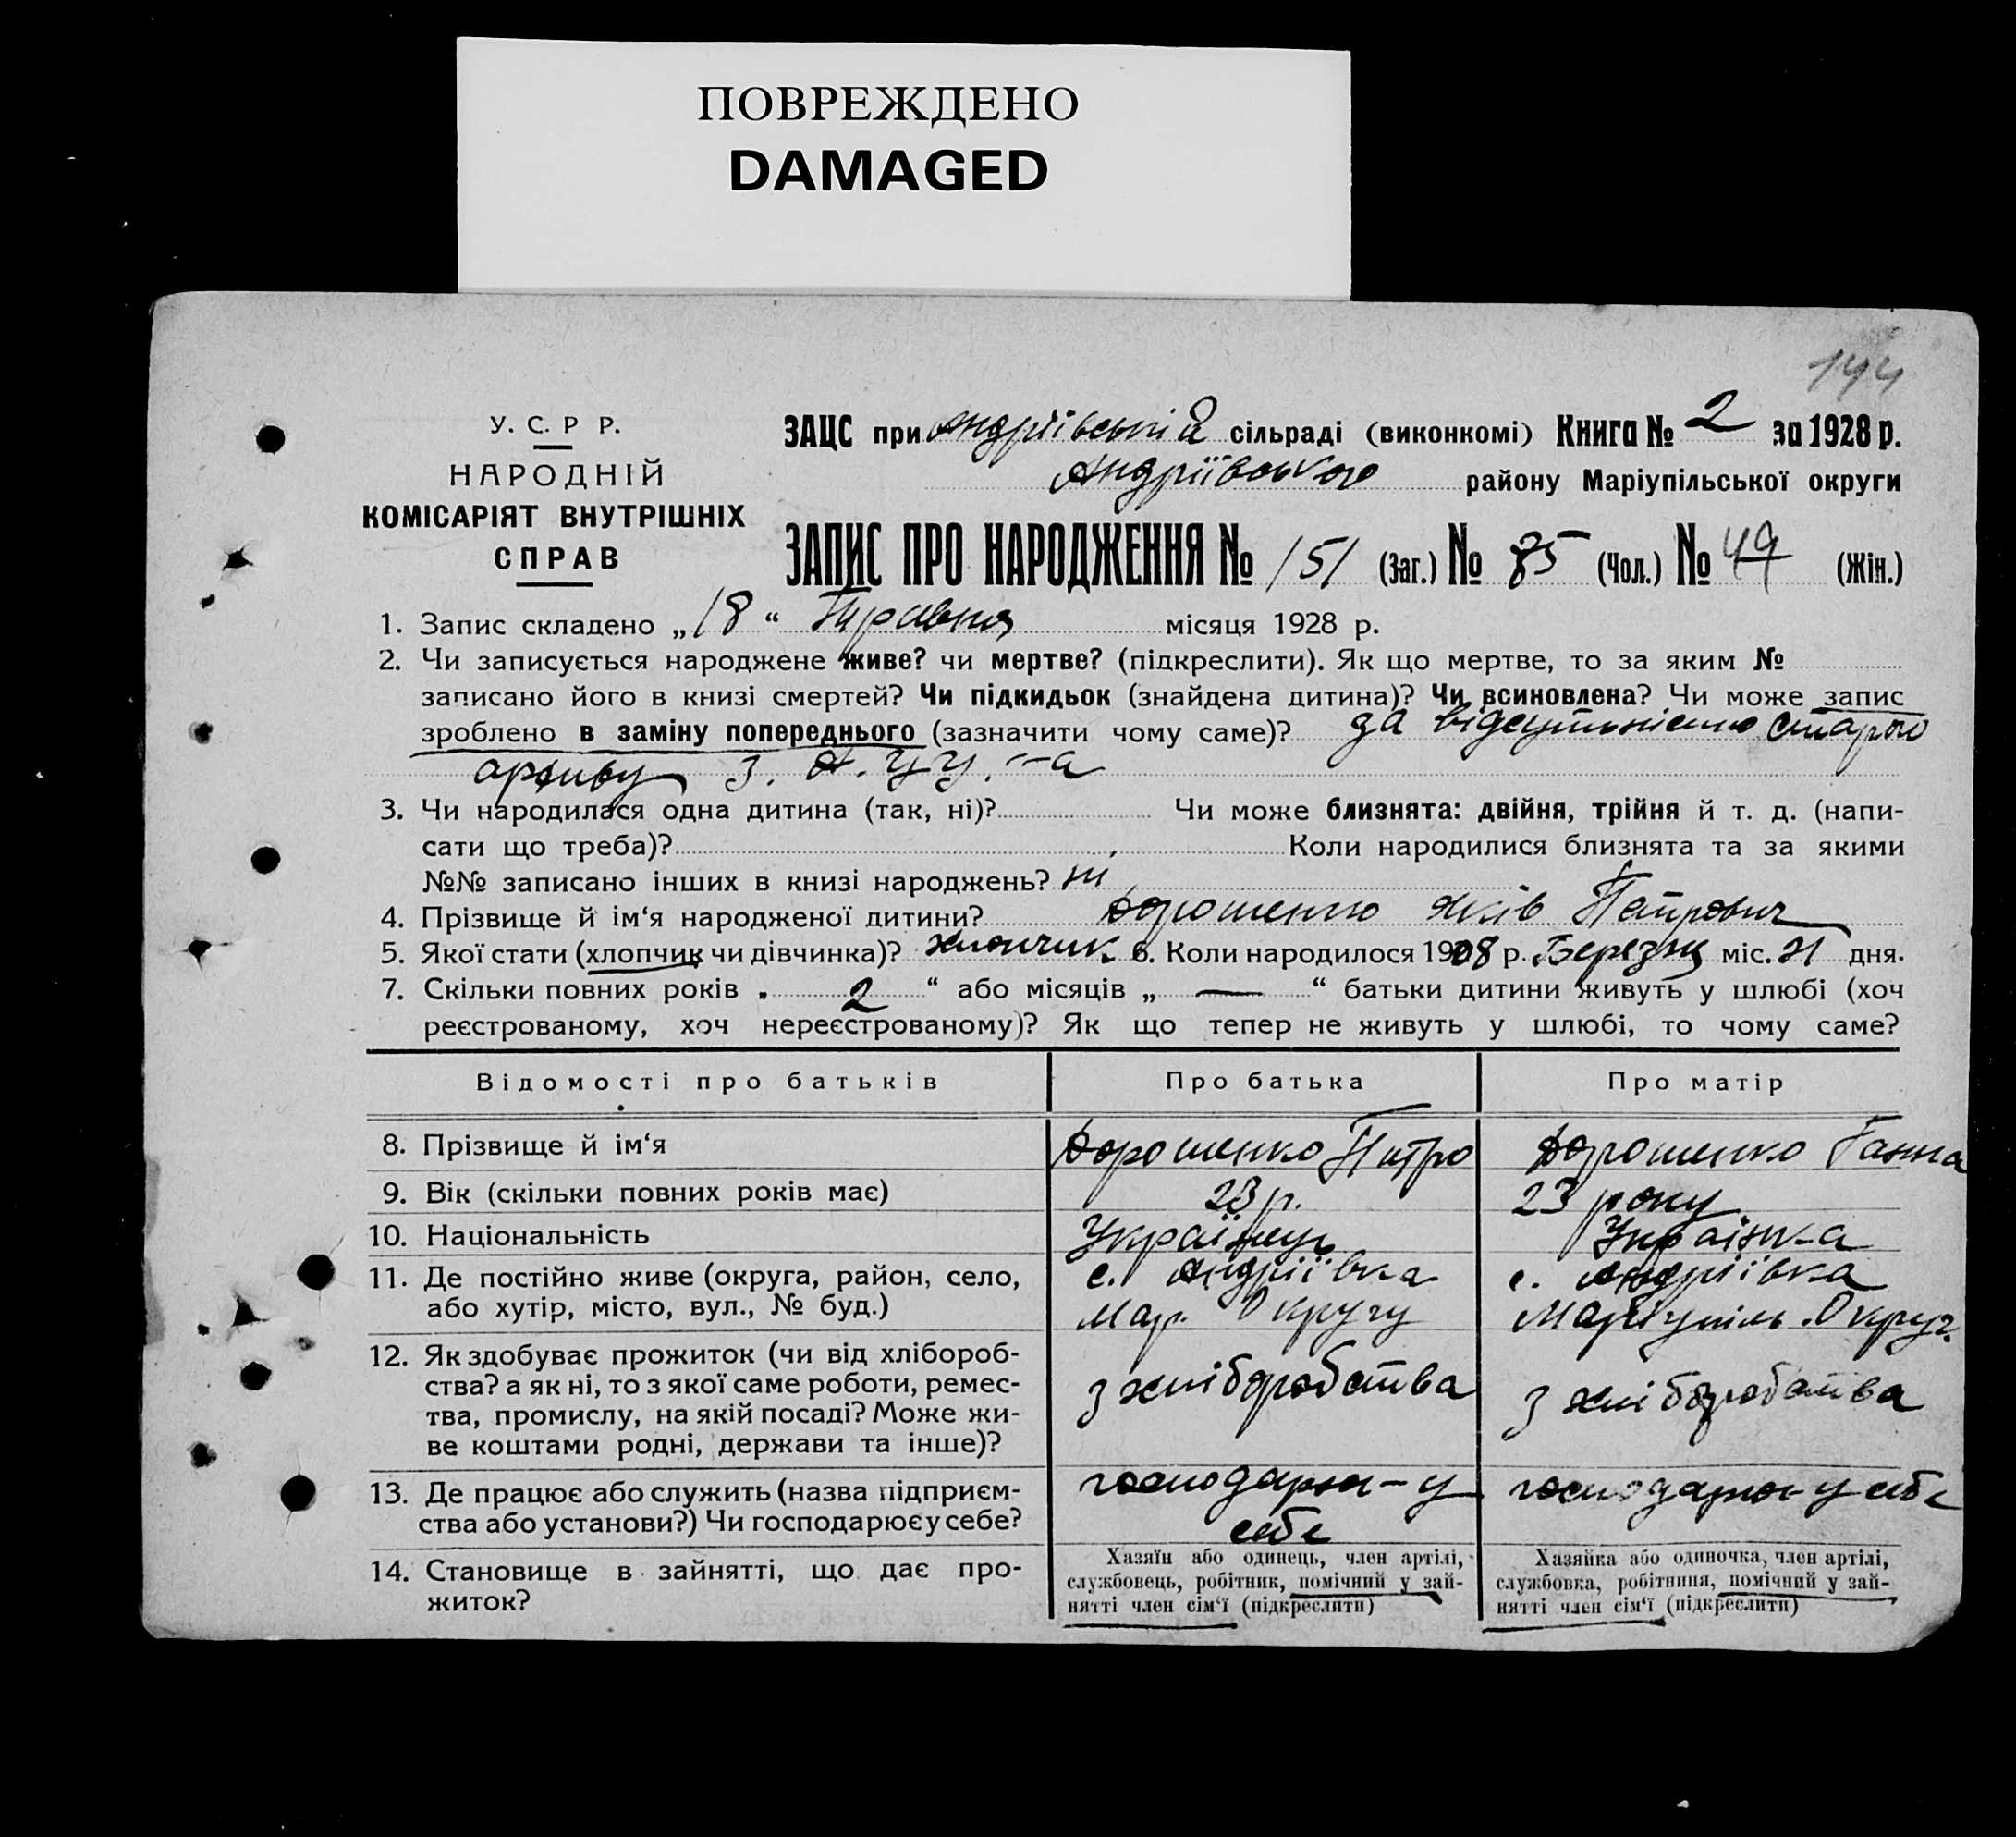 ПОВРЕЖДЕНО
DAMAGED
144
У. С. Р Р.
НАРОДНІЙ
КОМІСАРІЯТ ВНУТРІШНІХ
СПРАВ
ЗАЦС при Андріївській сільраді (виконкомі) Книга № 2 за 1928 р.
Андріївського району Маріупільської округи
ЗАПИС ПРО НАРОДЖЕННЯ № 151 (Заг.) № 85 (Чол.) № 49 (Жін.)
1. Запис складено „18“ Травня місяця 1928 р.
2. Чи записується народжене живе? чи мертве? (підкреслити). Як що мертве, то за яким №
записано його в книзі смертей? Чи підкидьок (знайдена дитина)? Чи всиновлена? Чи може запис
зроблено в заміну попереднього (зазначити чому саме)? за відсутністю старого
архиву З. А.
3. Чи народилася одна дитина (так, ні)? Чи може близнята: двійня, трійня й т. д. (напи-
сати що треба)? Коли народилися близнята та за якими
№№ записано інших в книзі народжень? ні
4. Прізвище й ім‘я народженої дитини? Дорошенко Яків Петрович
5. Якої стати (хлопчик чи дівчинка)? хлопчик 6. Коли народилося 1908 р. Березня міс. 21 дня.
7. Скільки повних років „ 2 “ або місяців „ — “ батьки дитини живуть у шлюбі (хоч
реєстрованому, хоч нереєстрованому)? Як що тепер не живуть у шлюбі, то чому саме?
Відомості про батьків Про батька Про матір
8. Прізвище й ім‘я Дорошенко Питро Дорошенко Ганна
9. Вік (скільки повних років має) 23 р. 23 року
10. Національність Українець Українка
11. Де постійно живе (округа, район, село, с. Андріївка с. Андріївка
або хутір, місто, вул., № буд.) Мар. Округу Маріупіль. Округ.
12. Як здобуває прожиток (чи від хлібороб-
ства? а як ні, то з якої саме роботи, ремес- з хліборобства з хліборобства
тва, промислу, на якій посаді? Може жи-
ве коштами родні, держави та інше)?
13. Де працює або служить (назва підприєм- господарює - у господарює у себе
ства або установи?) Чи господарює у себе? себе
14. Становище в зайнятті, що дає про-
житок?
Хазяїн або одинець, член артілі,
службовець, робітник, помічний у зай-
нятті член сім‘ї (підкреслити)
Хазяйка або одиночка, член артілі,
службовка, робітниця, помічний у зай-
нятті член сім‘ї (підкреслити)